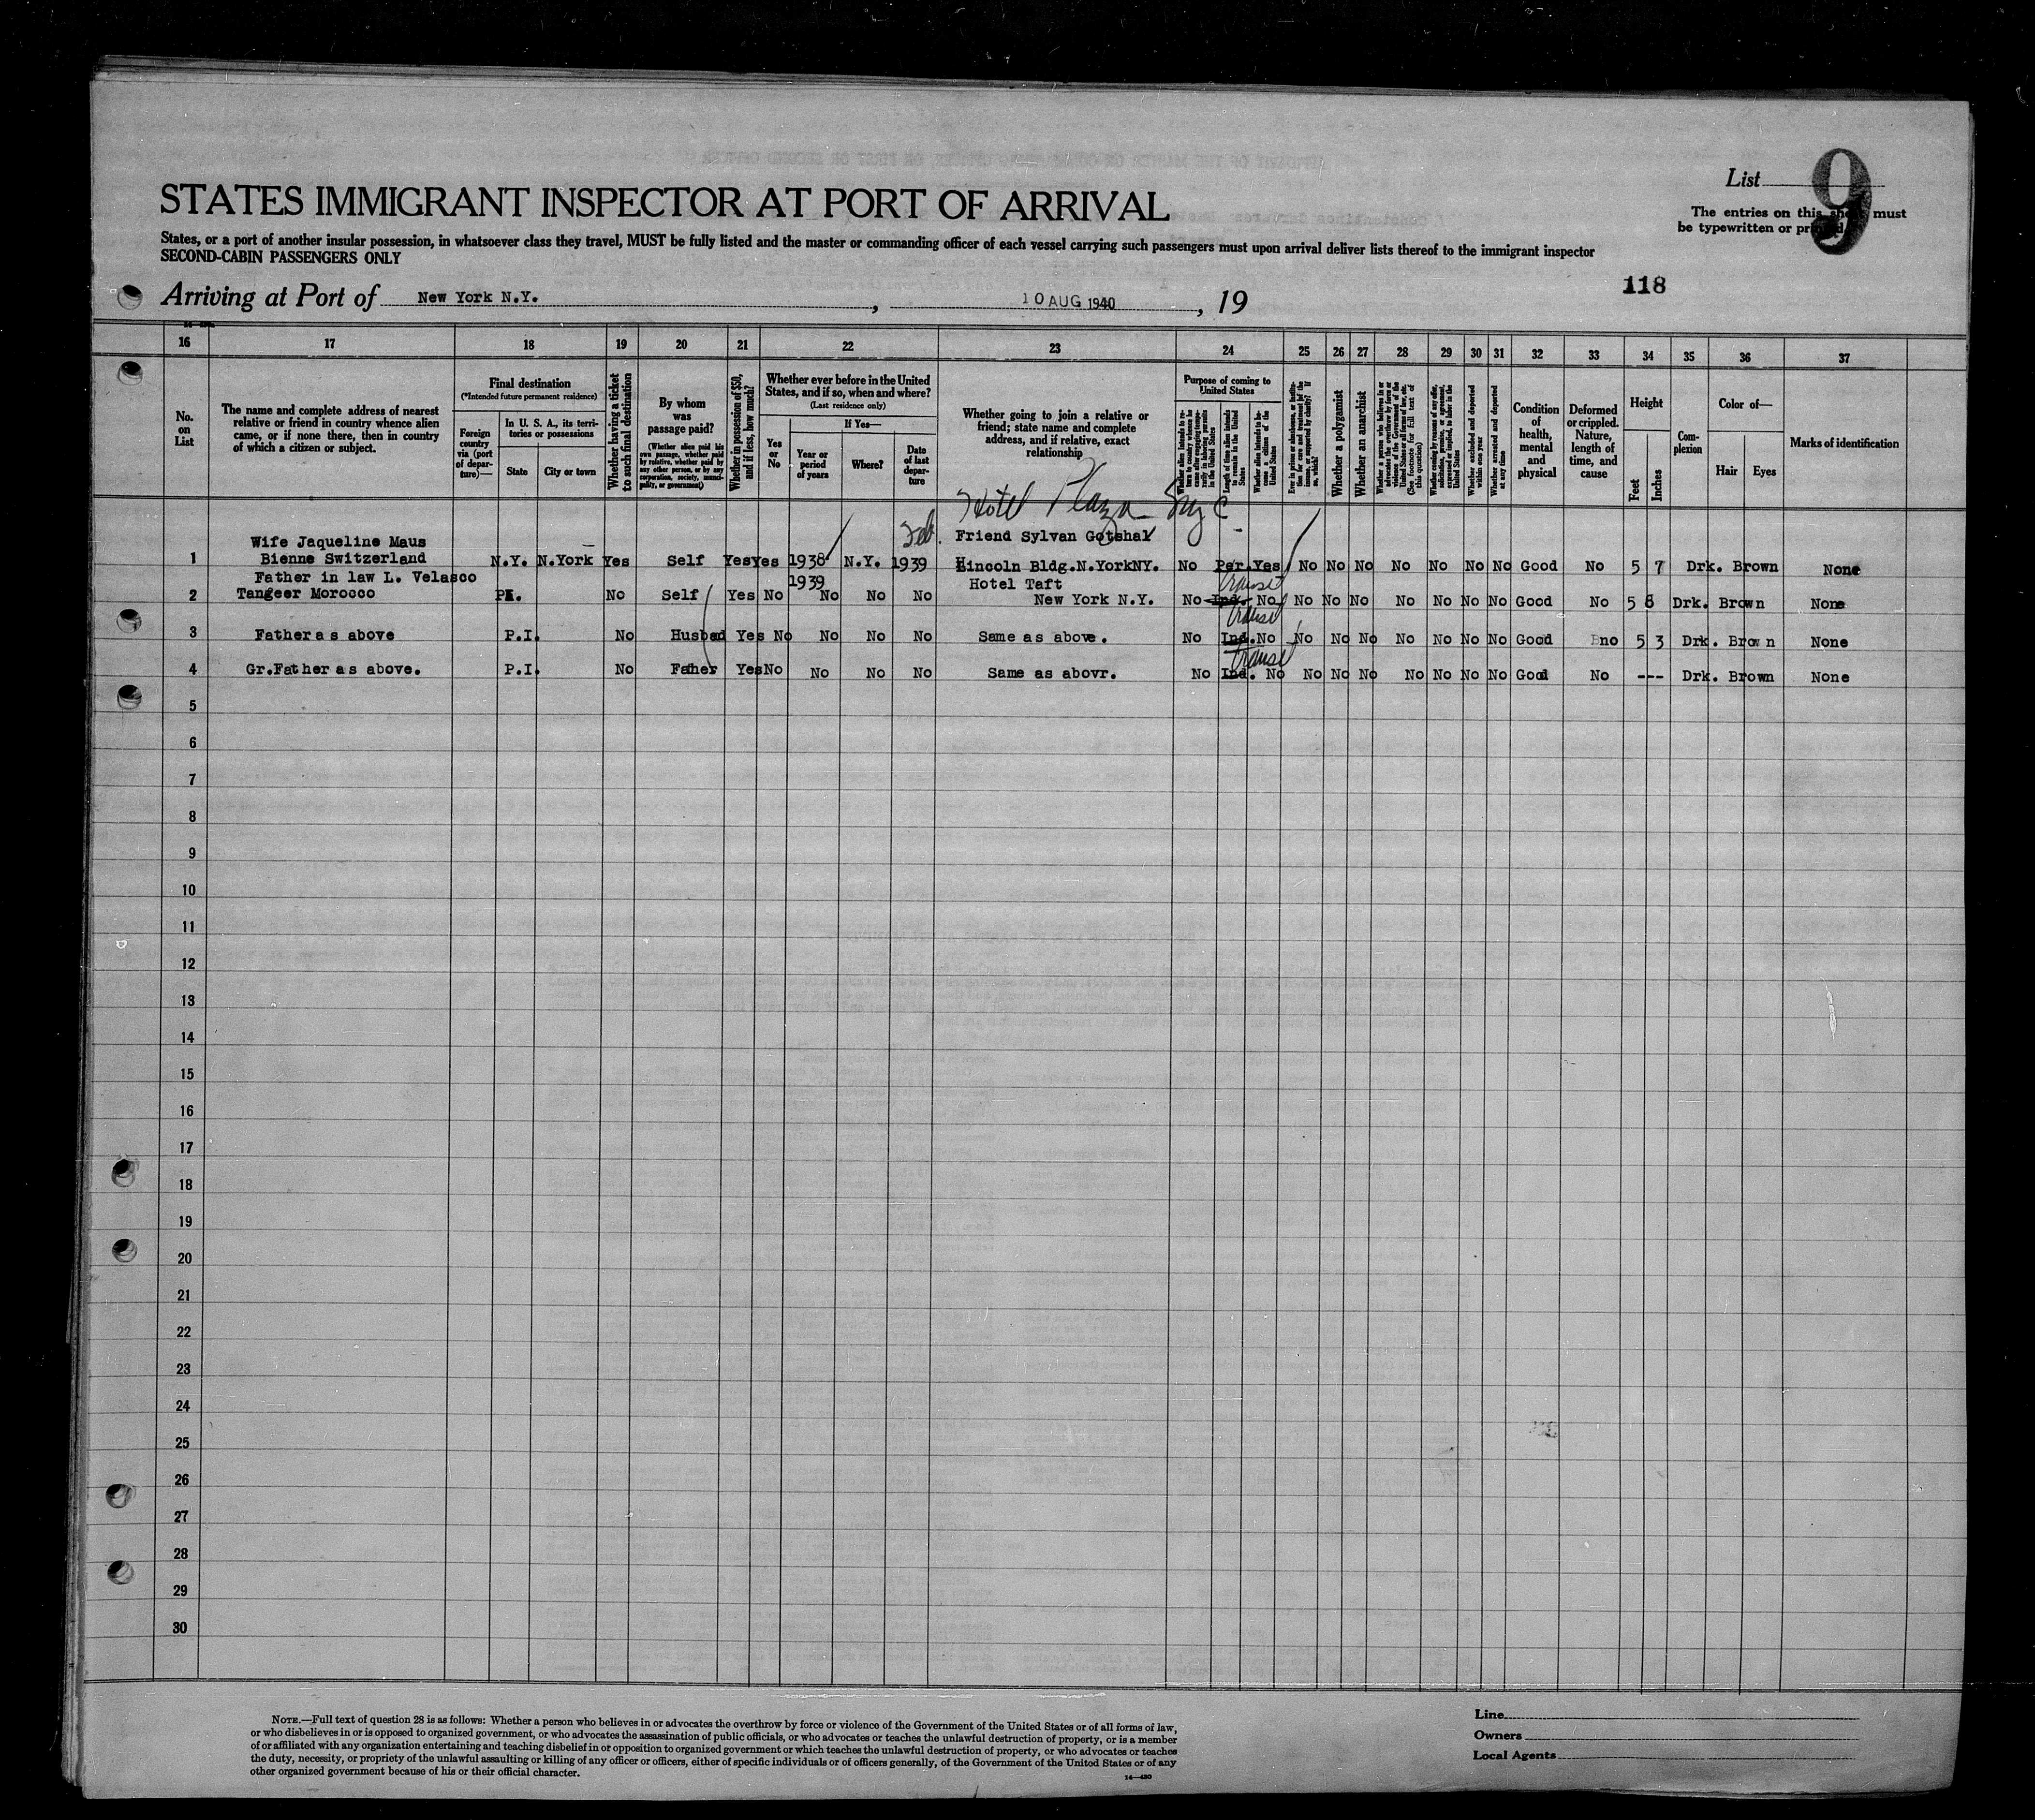 List 9
STATES IMMIGRANT INSPECTOR AT PORT OF ARRIVAL
The entries on this sheet must
be typewritten or printed
States, or a port of another insular possession, in whatsoever class they travel, MUST be fully listed and the master or commanding officer of each vessel carrying such passengers must upon arrival deliver lists thereof to the immigrant inspector
SECOND-CABIN PASSENGERS ONLY
118
Arriving at Port of New York N.Y. , 10 AUG 1940 , 19
16 17 18 19 20 21 22 23 24 25 26 27 28 29 30 31 32 33 34 35 36 37
No. on List
The name and complete address of nearest
relative or friend in country whence alien
came, or if none there, then in country
of which a citizen or subject.
Final destination
(*Intended future permanent residence)
Foreign country via (port of departure)—
In U. S. A., its territories or possessions
State
City or town
Whether having a ticket to such final destination
By whom was passage paid?
(Whether alien paid his own passage, whether paid by relative, whether paid by any other person, or by any corporation, society, municipality, or government)
Whether in possession of $50, and if less, how much?
Whether ever before in the United States, and if so, when and where?
(Last residence only)
Yes or No
If Yes—
Year or period of years
Where?
Date of last departure
Whether going to join a relative or
friend; state name and complete
address, and if relative, exact
relationship
Purpose of coming to United States
Length of time alien intends to remain in the United States
Whether alien intends to become a citizen of the United States
Whether a polygamist
Whether an anarchist
Whether excluded and deported within one year
Whether arrested and deported at any time
Condition of health, mental and physical
Deformed or crippled. Nature, length of time, and cause
Height
Feet
Inches
Complexion
Color of—
Hair
Eyes
Marks of identification
Hotel Plaza NYC
Wife Jaqueline Maus Feb. Friend Sylvan Gotshal
1 Bienne Switzerland N.Y. N.York Yes Self Yes Yes 1938 N.Y. 1939 Lincoln Bldg.N.YorkNY. No Per. Yes No No No No No No No Good No 5 7 Drk. Brown None
Father in law L. Velasco 1939 Hotel Taft transit
2 Tangeer Morocco P.I. No Self Yes No No No No New York N.Y. No Ind. No No No No No No No No Good No 5 8 Drk. Brown None
transit
3 Father as above P.I. No Husbad Yes No No No No Same as above. No Ind. No No No No No No No No Good no 5 3 Drk. Brown None
transit
4 Gr.Father as above. P.I. No Faher Yes No No No No Same as abovr. No Ind. No No No No No No No No Good No --- Drk. Brown None
5
6
7
8
9
10
11
12
13
14
15
16
17
18
19
20
21
22
23
24
25
26
27
28
29
30
NOTE.—Full text of question 28 is as follows: Whether a person who believes in or advocates the overthrow by force or violence of the Government of the United States or of all forms of law,
or who disbelieves in or is opposed to organized government, or who advocates the assassination of public officials, or who advocates or teaches the unlawful destruction of property, or is a member
of or affiliated with any organization entertaining and teaching disbelief in or opposition to organized government or which teaches the unlawful destruction of property, or who advocates or teaches
the duty, necessity, or propriety of the unlawful assaulting or killing of any officer or officers, either of specific individuals or of officers generally, of the Government of the United States or of any
other organized government because of his or their official character.
14—430
Line
Owners
Local Agents